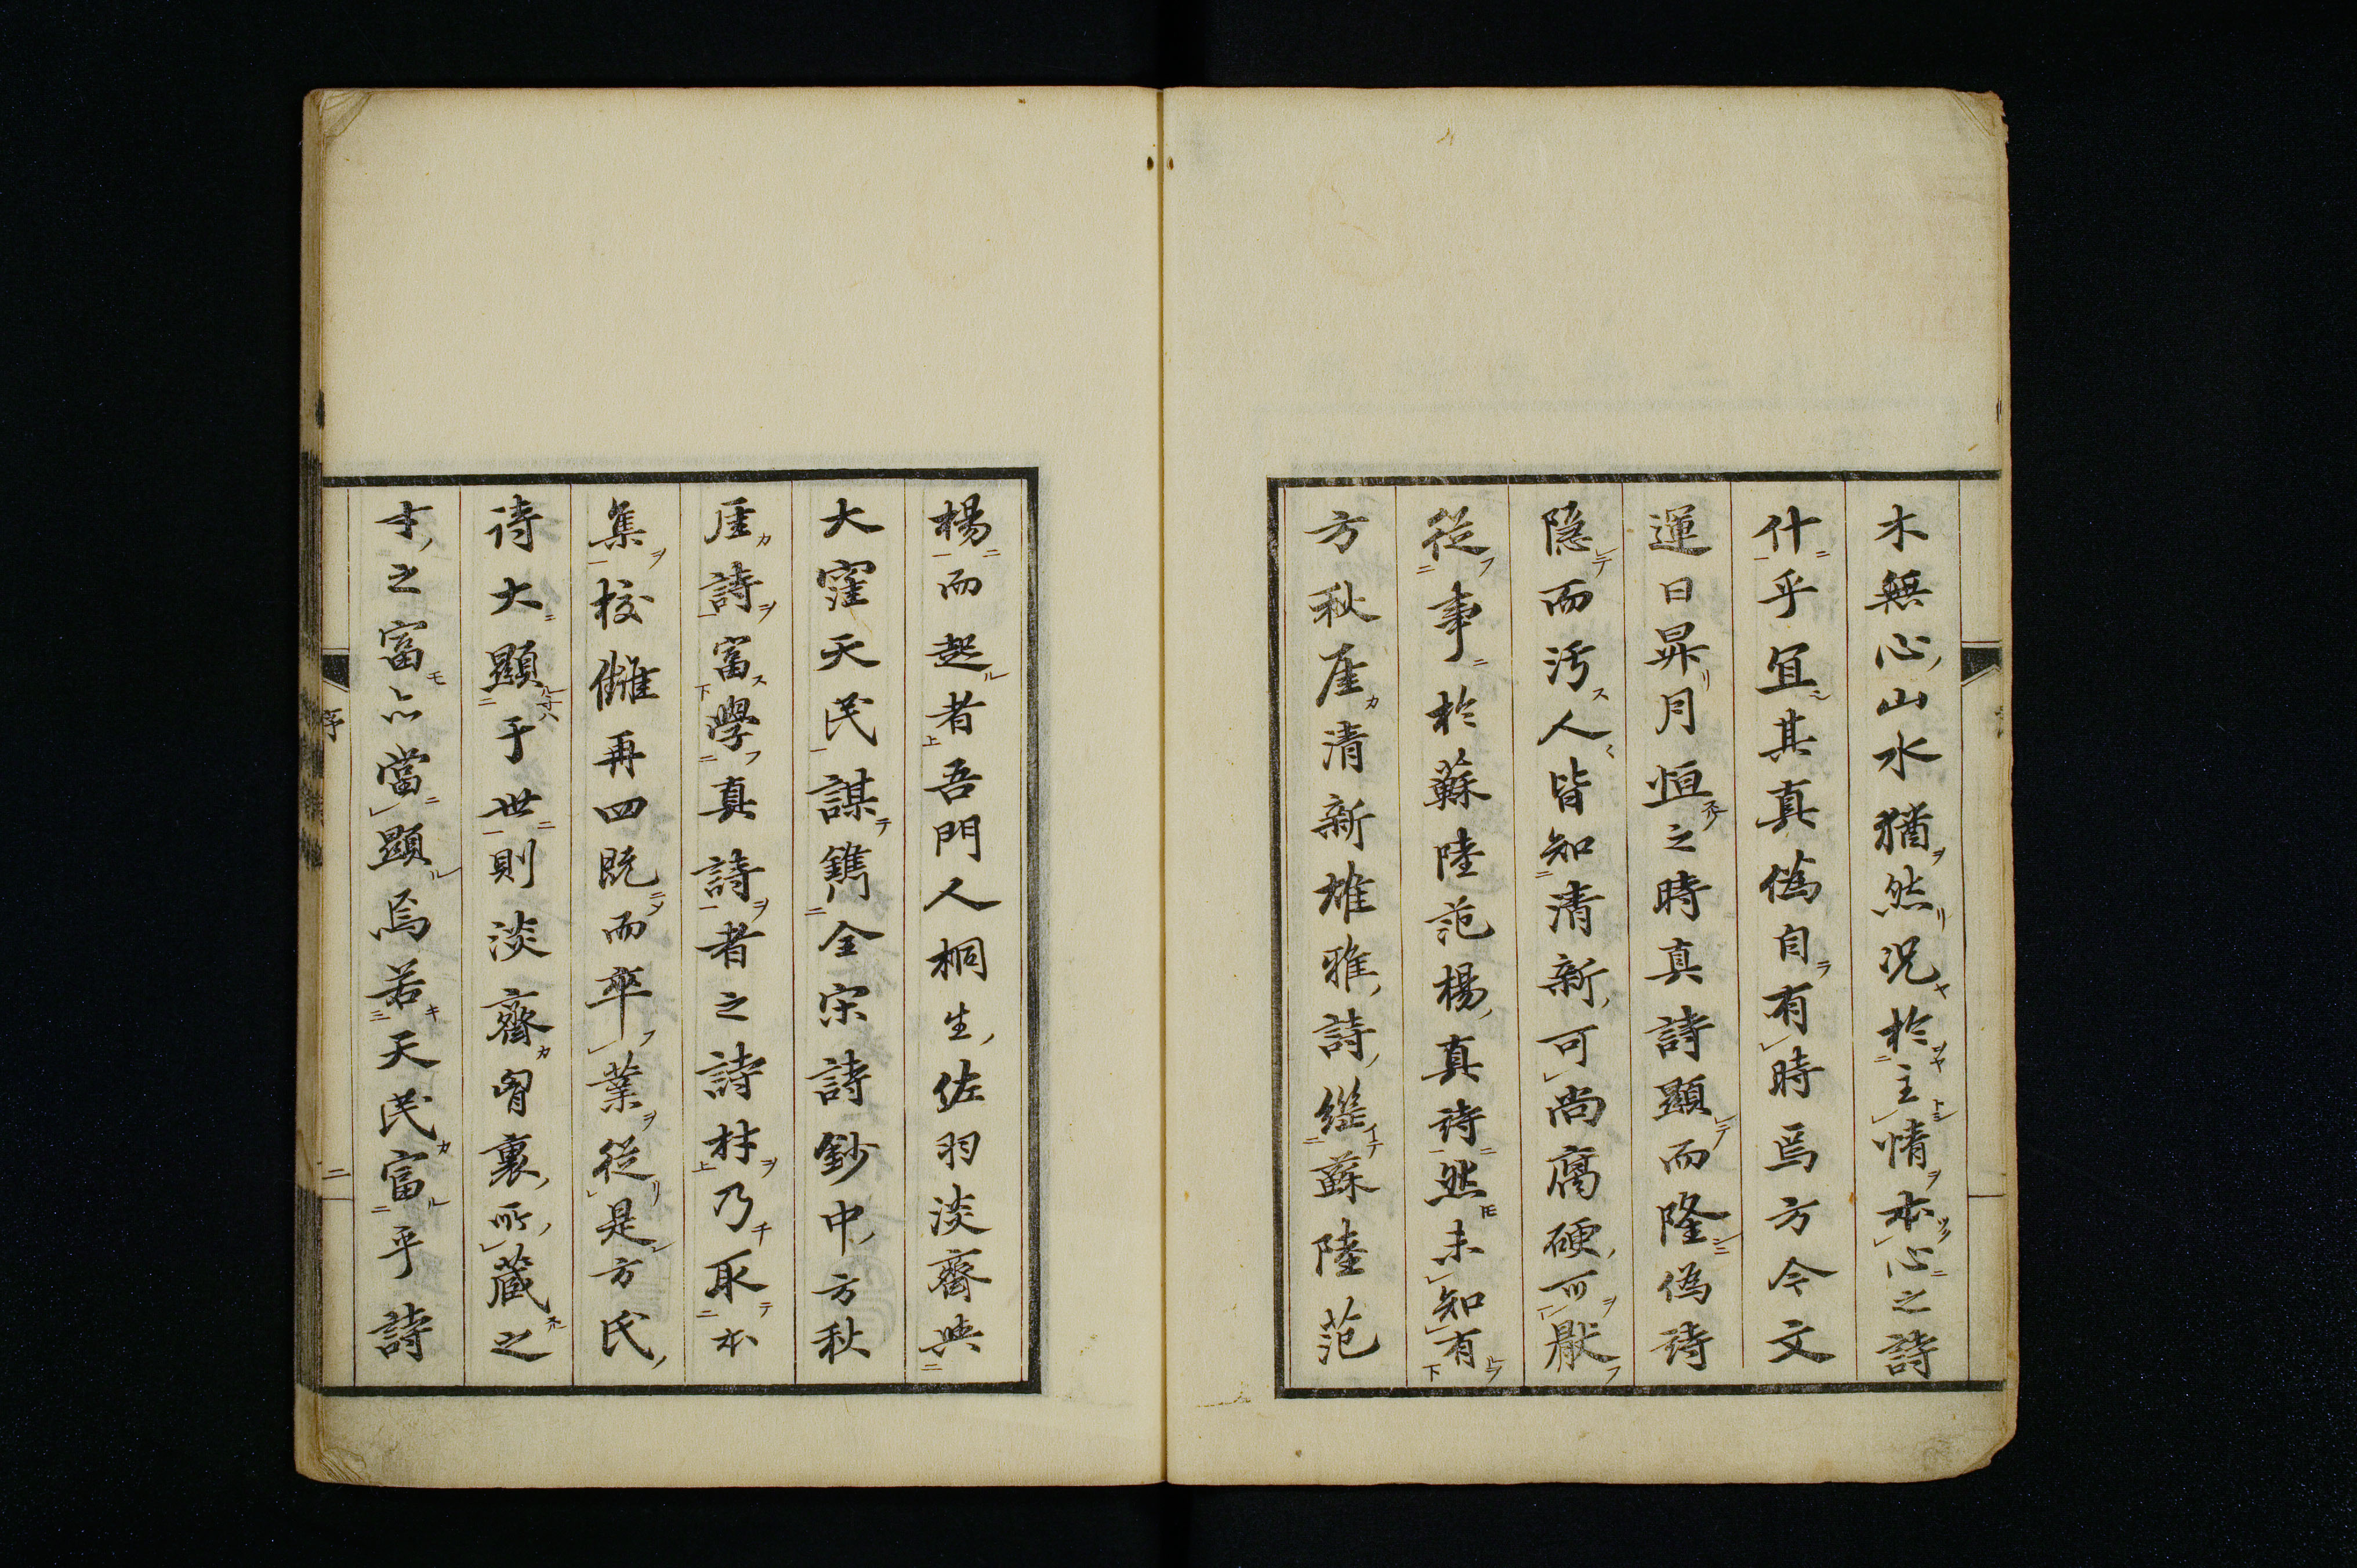 木無心山水猶然況於主情本心之詩
什乎宜其真偽自有時焉方今文
運日昇月恒之時真詩顕而隆偽詩
隠而汚人皆知清新可尚腐硬可厭
従事於蘇陸范楊真詩然未知有
方秋厓清新雄雅詩継蘇陸范
楊而起者吾門人桐生佐羽淡齋与
大窪天民謀鐫全宋詩鈔中方秋
厓詩富学真詩者之詩材乃取本
集校讎再四既而卒業従是方氏
詩大顕于世則淡齋胷裏所蔵之
才之富亦当顕焉若天民富乎詩
序
二